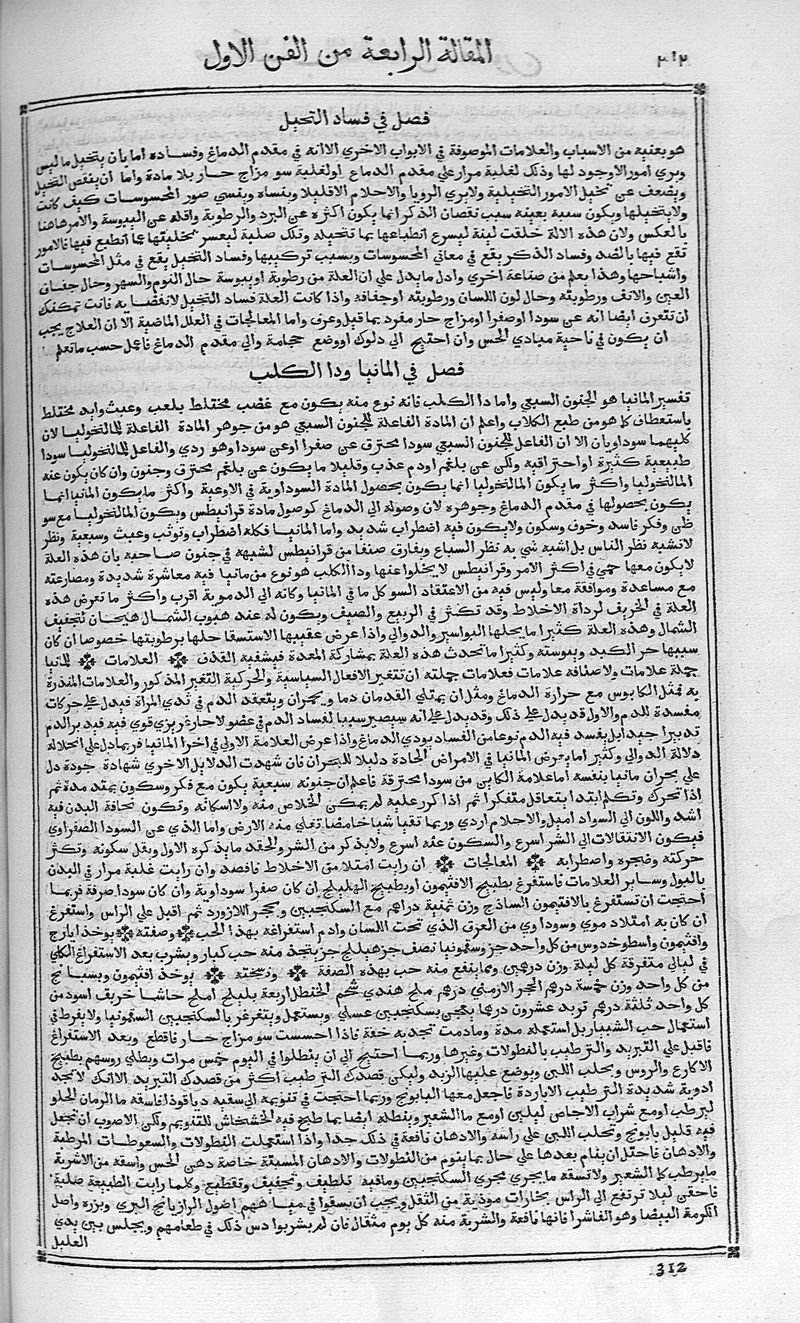 ٣١٢
المقالة الرابعة من الفن الاول
فصل في فساد التخيل
هو بعينه من الاسباب والعلامات الموصوفة في الابواب الاخري الا انه في مقدم الدماغ وفساده اما بان يتخيل ما ليس
ويري امورا لا وجود لها وذلك لغلبة مرار علي مقدم الدماغ او لغلبة سو مزاج حار بلا مادة واما ان ينقص التخيل
ويضعف عن تخيل الامور التخيلية ولا يري الرويا والاحلام الا قليلا وينساه وينسي صور المحسوسات كيف كانت
ولا يتخيلها ويكون سببه بعينه سبب نقصان الذكر انما يكون اكثره عن البرد والرطوبة واقله عن اليبوسة والامر هاهنا
بالعكس ولان هذه الالة خلقت لينة ليسرع انطباعها بما تتخيله وتلك صلبة ليعسر تخليتها عما انطبع فيها فالامور
تقع فيها بالضد وفساد الذكر يقع في معاني المحسوسات وبسبب تركيبها وفساد التخيل يقع في مثل المحسوسات
واشباحها وهذا يعلم من صناعة اخري وادل ما يدل علي ان العلة من رطوبة او يبوسة حال النوم والسهر وحال جفان
العين والانف ورطوبته وحال لون اللسان ورطوبته او جفافه واذا كانت العلة فساد التخيل لا نقصانه فانت تمكنك
ان تتعرف ايضا انه عن سودا او صفرا او مزاج حار مفرد بما قيل وعرف واما المعالجات في العلل الماضية الا ان العلاج يجب
ان يكون في ناحية مبادي الحس وان احتيج الي دلوك او وضع حجامة والي مقدم الدماغ فاعل حسب ما تعلم
فصل في المانيا ودا الكلب
تفسير المانيا هو الجنون السبعي واما دا الكلب فانه نوع منه يكون مع غضب مختلط بلعب وعبث وايذ مختلط
باستعطاف كما هو من طبع الكلاب واعلم ان المادة الفاعلة للجنون السبعي هو من جوهر المادة الفاعلة للمالنخوليا لان
كليهما سوداويان الا ان الفاعل للجنون السبعي سودا محترق عن صفرا او عن سودا وهو ردي والفاعل للمالنخوليا سودا
طبيعية كثيرة او احتراقية ولكن عن بلغم او دم عذب وقليلا ما يكون عن بلغم محترق وجنون وان كان يكون عنه
المالنخوليا واكثر ما يكون المالنخوليا انما يكون بحصول المادة السوداوية في الاوعية واكثر ما يكون المانيا انما
يكون بحصولها في مقدم الدماغ وجوهره لان وصوله الي الدماغ كوصول مادة قرانيطس ويكون المالنخوليا مع سو
ظن وفكر فاسد وخوف وسكون ولا يكون فيه اضطراب شديد واما المانيا فكله اضطراب وتوثب وعبث وسبعية ونظر
لا تشبه نظر الناس بل اشبه شي به نظر السباع ويفارق صنفا من قرانيطس لشبهه في جنون صاحبه بان هذه العلة
لا يكون معها حمي في اكثر الامر وقرانيطس لا يخلوا عنها ودا الكلب هو نوع من مانيا فيه معاشرة شديدة ومصارعته
مع مساعدة وموافقة معا وليس فيه من الاعتقاد السو كل ما في المانيا وكانه الي الدموية اقرب واكثر ما تعرض هذه
العلة في الخريف لرداة الاخلاط وقد تكثر في الربيع والصيف ويكون له عند هبوب الشمال هيجان لتجفيف
الشمال وهذه العلة كثيرا ما يحلها البواسير والدوالي واذا عرض عقيبها الاستسقا حلها برطوبتها خصوصا ان كان
سببها حر الكبد ويبوسته وكثيرا ما تحدث هذه العلة بمشاركة المعدة فيشفيه القذف العلامات للمانيا
جملة علامات ولاصنافه علامات فعلامات جملته ان تتغير الافعال السياسية والحركية التغير المذكور والعلامات المنذرة
به فمثل الكابوس مع حرارة الدماغ ومثل ان يمتلي القدمان دما ويحمران ويتعقد الدم في ثدي المراة فيدل علي حركات
مفسدة للدم والاول قد يدل علي ذلك وقد يدل علي انه سيصير سببا لفساد الدم في عضو لا حار غريزي قوي فيه فيدبر الدم
تدبيرا جيدا بل يفسد فيه الدم نوعا من الفساد يودي الدماغ واذا عرض العلامة الاولي في اخر المانيا فربما دل علي انحلاله
دلالة الدوالي وكثيرا ما يعرض المانيا في الامراض الحادة دليلا للبحران فان شهدت الدلايل الاخري شهادة جودة دل
علي بحران مانيا بنفسه اما علامة الكاين من سودا محترقة فاعلم ان جنونه سبعية يكون مع فكر وسكون يمتد مدة ثم
اذا تحرك وتكلم ابتدا بتعاقل متفكرا ثم اذا كرر عليه لم يمكن الخلاص منه ولا اسكاته وتكون نحافة البدن فيه
اشد واللون الي السواد اميل والاحلام اردي وربما تقيا شيا حامضا تغلي منه الارض واما الذي عن السودا الصفراوي
فيكون الانتقالات الي الشر اسرع والسكون عنه اسرع ولا يذكر من الشر والحقد ما يذكره الاول ويقل سكونه وتكثر
حركته وضجره واضطرابه المعالجات ان رايت امتلا من الاخلاط فافصد وان رايت غلبة مرار في البدن
بالبول وساير العلامات فاستفرغ بطبيخ الافتيمون او بطبيخ الهليلج ان كان صفرا سوداوية وان كان سودا صرفة فربما
احتجت ان تستفرغ بالافتيمون الساذج وزن ثمنية دراهم مع السكنجبين وبحجر اللازورد ثم اقبل علي الراس واستفرغ
ان كان به امتلا دموي وسوداوي من العرق الذي تحت اللسان وادم استفراغه بهذا الحب وصفته يوخذ ايارج
وافتيمون واسطوخدوس من كل واحد جز وسقمونيا نصف جز هليلج جز يتخذ منه حب كبار ويشرب بعد الاستفراغ الكلي
في ليالي متفرقة كل ليلة وزن درهمين ومما ينفع منه حب بهذه الصفة ونسخته يوخذ افتيمون وبسبايج
من كل واحد وزن خمسة درهم الحجر الارمني درهم ملح هندي شحم الحنظل اربعة بليلج املج حاشا خربق اسود من
كل واحد ثلثة درهم تربد عشرون درهما يعجن بسكنجبين عسلي ويستعمل ويتغرغر بالسكنجبين السقمونيا ولا يفرط في
استعمال حب الشبيار بل استعمله مدة وما دمت تجد به خفة فاذا احسست سو مزاج حار فاقطع وبعد الاستفراغ
فاقبل علي التبريد والترطيب بالنطولات وغيرها وربما احتيج الي ان ينطلوا في اليوم خمس مرات ويطلي روسهم بطبيخ
الاكارع والروس وبحلب اللبن ويوضع عليها الزبد وليكن قصدك الترطيب اكثر من قصدك التبريد الا انك لا تجد
ادوية شديدة الترطيب الا باردة فاجعل معها البابونج وربما احتجت في تنويمه الي سقيه دياقوذا فاسقه ما الرمان الحلو
ليرطب او مع شراب الاجاص ليلين او مع ما الشعير وينطله ايضا بما طبخ فيه الخشخاش للتنويم ولكن الاصوب ان تجعل
فيه قليل بابونج وتحلب اللبن علي راسه والادهان نافعة في ذلك جدا واذا استعملت النطولات والسعوطات المرطبة
والادهان فاحتل ان ينام بعدها علي حال بما ينوم من النطولات والادهان المسبتة خاصة دهن الخس واسقه من الاشربة
ما يرطب كما الشعير ولا تسقه ما يجري مجري السكنجبين وما فيه تلطيف وتجفيف وتقطيع وكلما رايت الطبيعة صلبة
فاحقن ليلا ترتفع الي الراس بخارات موذية من الثقل ويجب ان يسقوا في مياههم اصول الرازيانج البري وبزره واصل
الكرمة البيضا وهو الفاشرا فانها نافعة والشربة منه كل يوم مثقال فان لم يشربوا دس ذلك في طعامهم ويجلس بين يدي
العليل
312